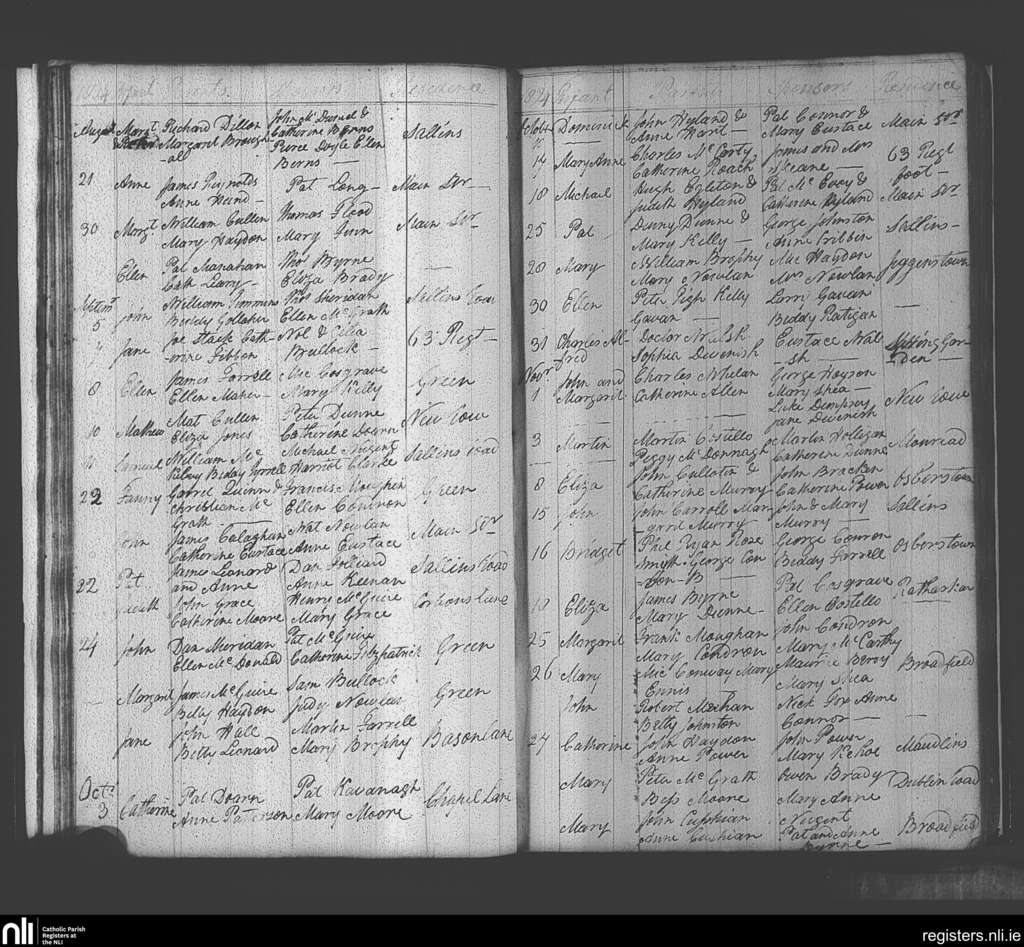 1824 Infant Parents Residence
August Margt Richard Dillon John Mc Daniel & Sallins
Margaret Catherine Byrns
Pierce Doyle Ellen
Berns —
21 Anne James Reynolds Pat Long — Main Str —
Anne
30 Margt William Cullen Thomas Flood Main Str —
Mary Haydon Mary Finn
Ellen Pat Manahan Thos Byrne —
Cath Leary — Eliza Brady
William Timmins Thos Sheridan Sallins
5 John Biddy Ellen Mc Grath
Jane Joe Stack Cath- & Celia 63 Regt —
-erine Gibbon Bullock —
8 Ellen James Farrell Mic Cosgrave Green
Ellen Maher — Mary Kelly
10 Mathew Mat Cullen Peter Dunne New
Eliza Jones Catherine Doarn
11 Samuel William Mc Michael Nugent Sallins road
Biddy Farrell Harriot Clarke
22 Fanny Garret Quinn & Francis Moughen Green
Christian Mc Ellen Condron
Grath —
John James Calaghan Mat Nowlan Main Str
Catherine Eustace Anne Eustace
22 Pat James Leonard Dan Sallins road
and Anne Anne Keenan
Judith John Grace Henry McGuire Corbans Lane
Catherine Moore Mary Grace
24 John Dan Meridan Pat McGuire Green
Ellen Mc Donald Catherine Fitzpatrick
— Margaret James McGuire Sam Bullock Green
Betty Haydon Judy Nowlan
Jane John Hall Martin Farrell Bason Lane
Betty Leonard Mary Brophy
Octr
3 Catherine Pat Doarn Pat Kavanagh Chapel Lane
Anne Paterson Mary Moore
1824 Infant Parents Sponsors Residence
Dominick John Hyland & Pat Connor & Main Str
Anne Mary Eustace
17 Mary Anne Charles McCarty James and Mrs 63 Regt
Catherine Roach foot —
18 Michael Hugh Egleton & Pat Mc Evoy & Main Str
Judith Hyland Catherine Hyland
25 Pat Denny Dunne & George Johnston Sallins —
Mary Kelly — Anne Gribbin
28 Mary William Brophy Mic Haydon Jiggenstown
Mary Nowlan Mrs Nowlan
30 Ellen Peter Kelly Larry Gavan —
Gavan — Biddy Ratigan
31 Charles Al- Doctor Walsh Eustace Wal-
fred Sophia Devenish -sh — den —
Novr
1 John and Charles Whelan George Hopson New
Margaret Catherine Allen Mary Shea —
Luke Dempsey
Jane Devenish
3 Martin Martin Costillo Martin Holligan Monread
Peggy McDonnagh Catherine Dunne
8 Eliza John Cullaton & John Bracken Osberstown
Catherine Murray Catherine Power
15 John John Carroll Mar- John & Mary Sallins
-garet Murry — Murry —
16 Bridget Phil Ryan Rose George Conron Osberstown
Smyth. George Con- Biddy Farrell
-don —
18 Eliza James Byrne Pat Cosgrave Rathaskar
Mary Dunne — Ellen Costillo
25 Margaret Frank Moughan John Condron
Mary Condron Mary McCarthy
26 Mary Mic Conway Mary Maurice Broadfield
Ennis — Mary Shea
John Robert Mechan Nick Fox Anne
Betty Johnston Connor —
27 Catherine John Haydon John Power Maudlins
Anne Power Mary Kehoe
Mary Peter Mc Grath Owen Brady Dublin road
Bess Moore Mary Anne
Nugent
Mary John Cushian Pat and Anne Broadfield
Anne Cushian Byrne —
nli Catholic Parish
Registers at
the NLI
registers.nli.ie